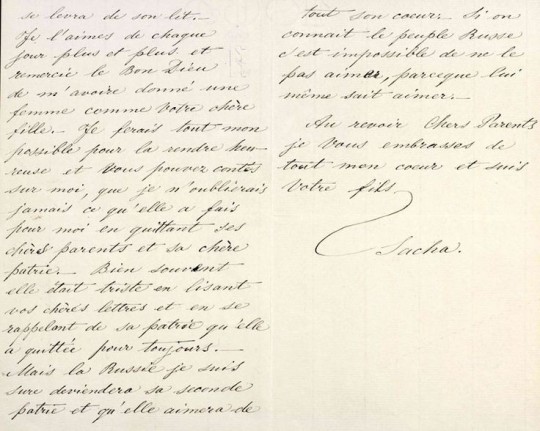 se levra de son lit.-
Je l'aimes de chaque
jour plus et plus et
remercie le Bon Dieu
de m'avoire donné une
femme comme Votre chère
fille.- Je ferais tout mon
possible pour la rendre heu-
reuse et Vous pouvez contes
sur moi, que je n'oublierais
jamais ce qu'elle a fais
pour moi en quittant ses
chèrs parents et sa chère
patrie.- Bien souvent
elle était triste en lisant
vos chérès lettres et en se
rappelant de sa patrie qu'elle
a quittée pour toujours.-
Mais la Russie je suis
sure deviendera sa seconde
patrie et qu'elle aimera de
tout son coeur.- Si on
connait le peuple Russe
c'est impossible de ne le
pas aimer, parceque lui
même sait aimer.-
Au revoir Chers Parents
je Vous embrasses de
tout mon coeur et suis
Votre fils
Sacha.